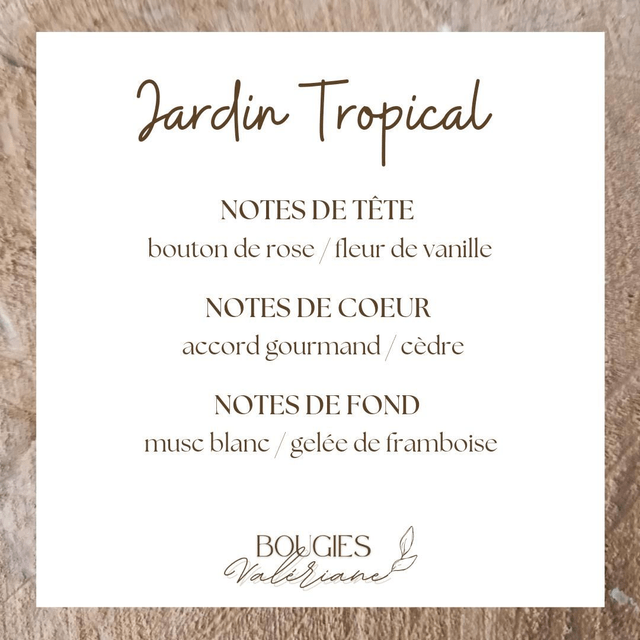 Jardin Tropical
NOTES DE TÊTE
bouton de rose / fleur de vanille
NOTES DE COEUR
accord gourmand / cèdre
NOTES DE FOND
musc blanc / gelée de framboise
BOUGIES
Valériane